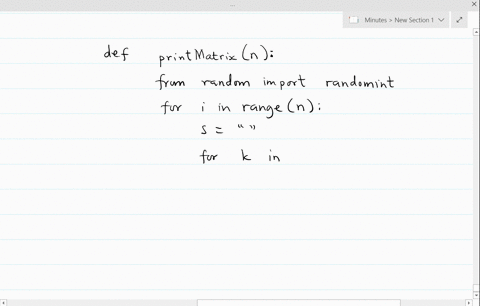 Minutes > New Section 1
def printMatrix(n):
from random import randomint
for i in range(n):
s = “ ”
for k in